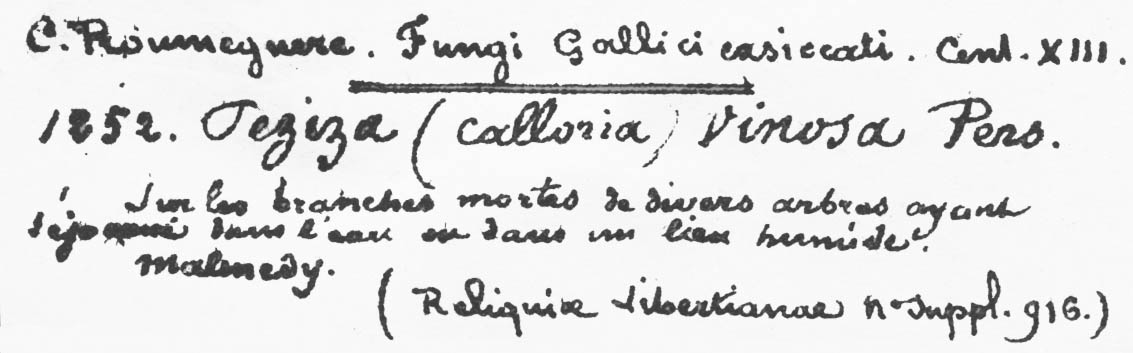 C. Roumeguere. Fungi Gallici exsiccati. Cent. XIII.
1252. Peziza (Calloria) Vinosa Pers.
Sur les branches mortes de divers arbres ayant
séjourné dans l'eau ou dans un lieu humide.
Malmedy.
(Reliquiæ Libertianae n. Suppl. 916.)